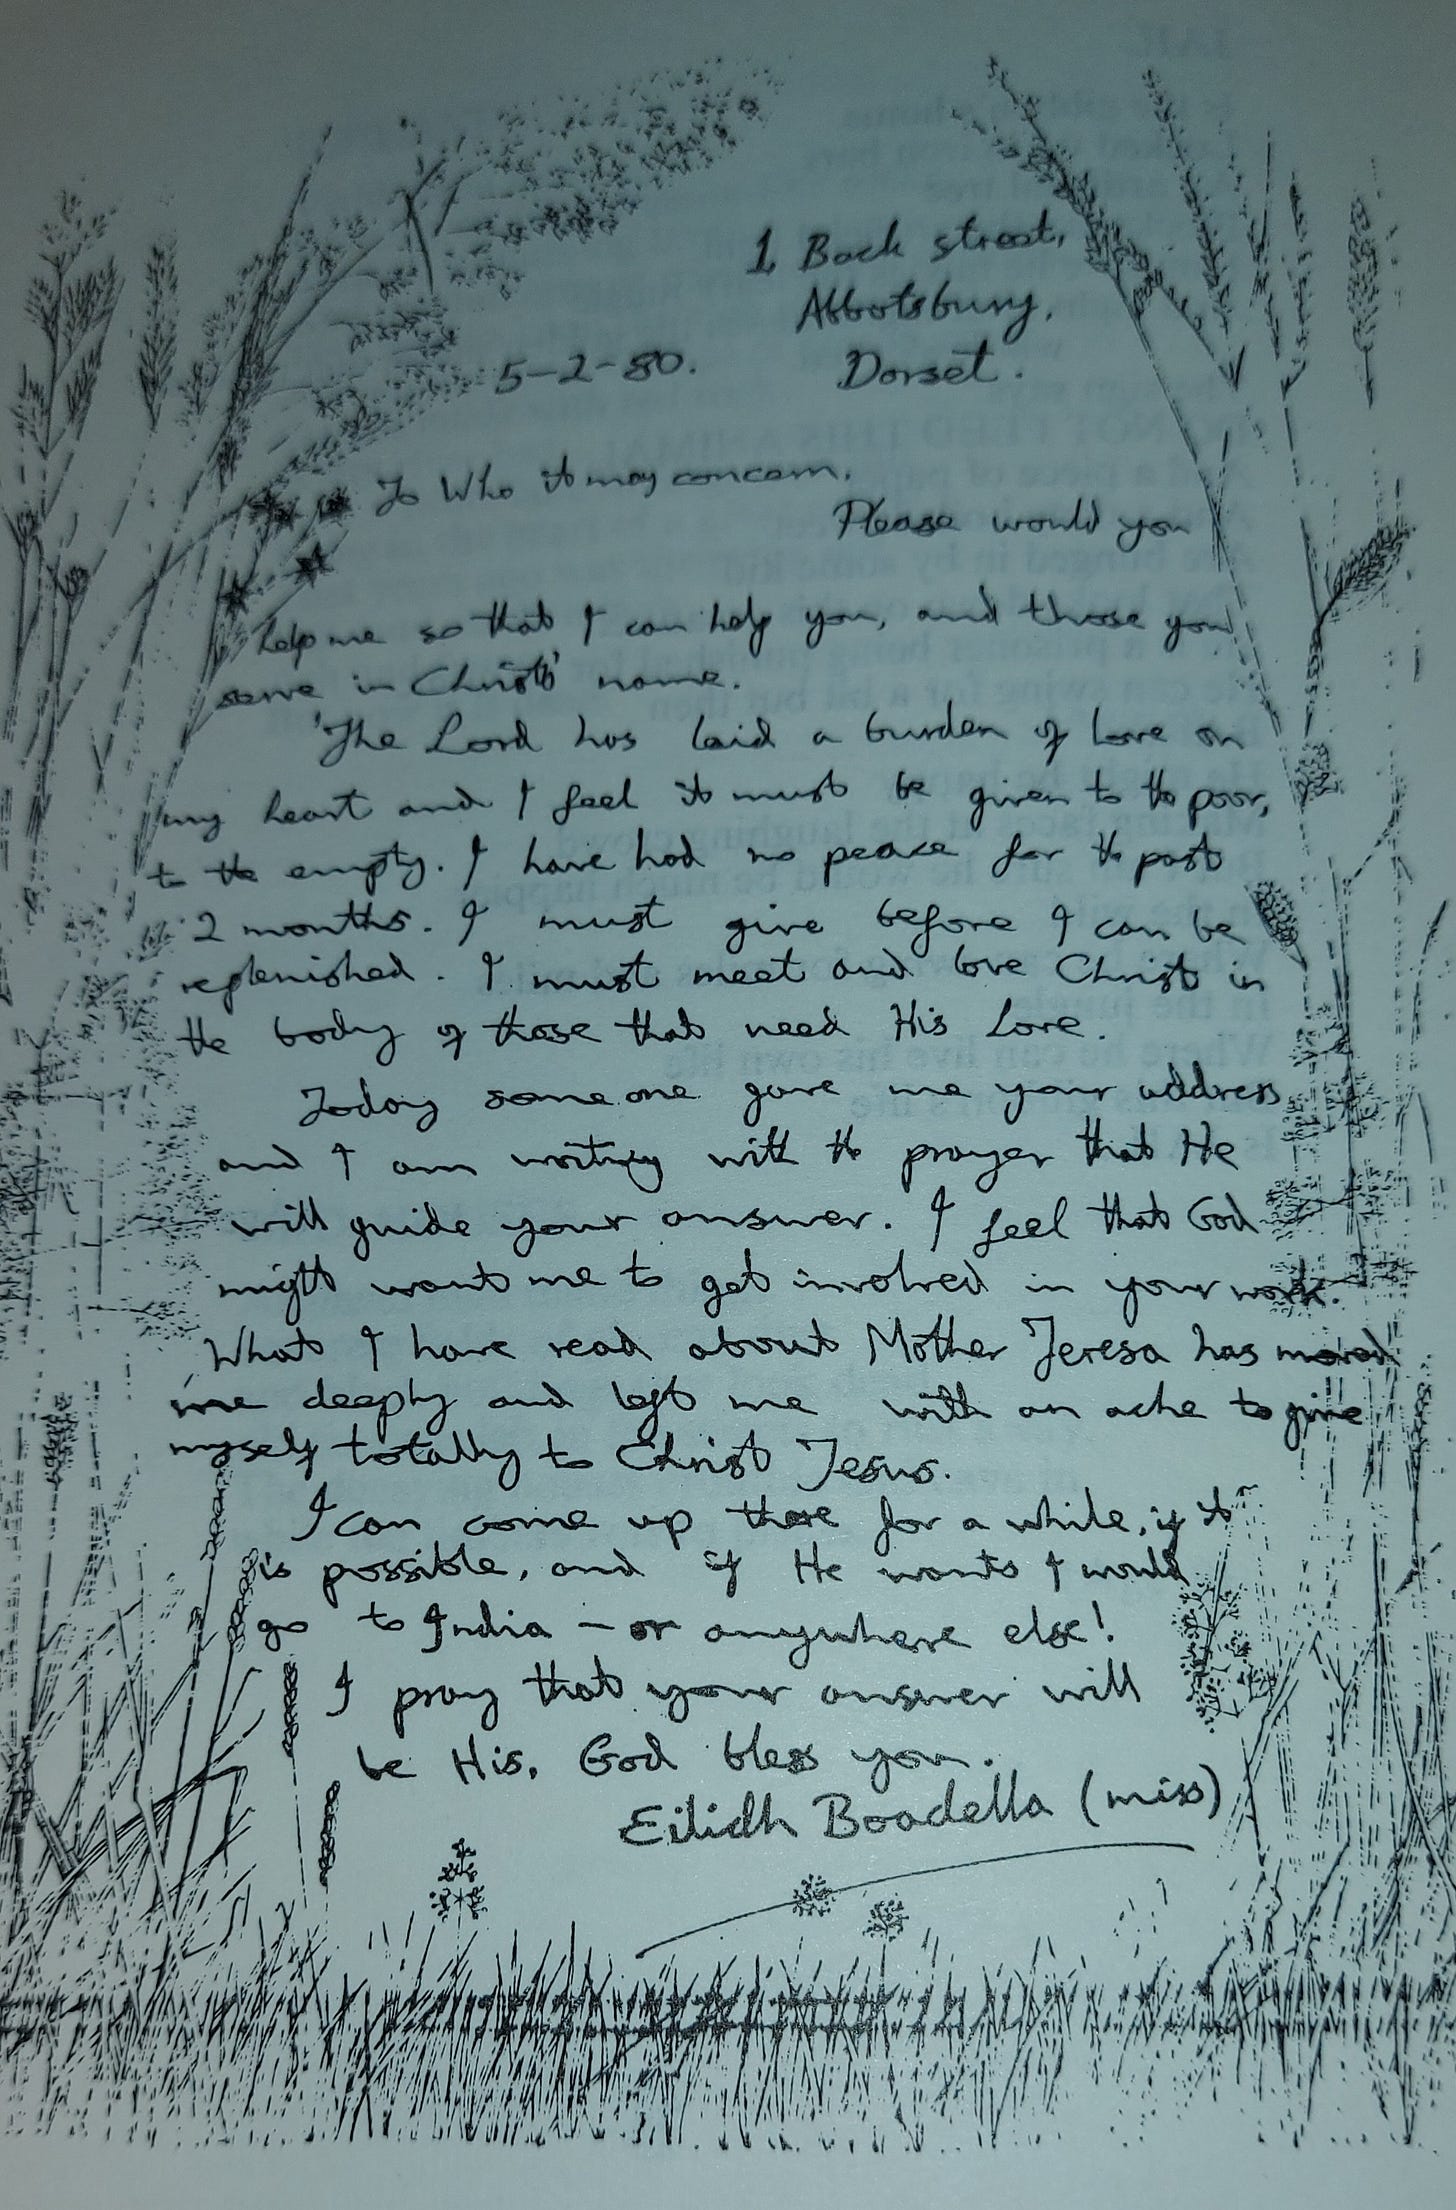 1 Back street,
Abbotsbury,
5-2-80. Dorset.
To Who it may concern.
Please would you
help me so that I can help you, and those you
serve in Christs' name.
'The Lord has laid a burden of love on
my heart and I feel it must be given to the poor,
to the empty. I have had no peace for the past
2 months. I must give before I can be
replenished. I must meet and love Christ in
the body of those that need His Love.
Today someone gave me your address
and I am writing with the prayer that He
will guide your answer. I feel that God
might want me to get involved in your work.
What I have read about Mother Teresa has moved
me deeply and left me with an ache to give
myself totally to Christ Jesus.
I can come up there for a while, if it
is possible, and if He wants I would
go to India - or anywhere else!
I pray that your answer will
be His. God bless you.
Eilidh Boadella (miss)